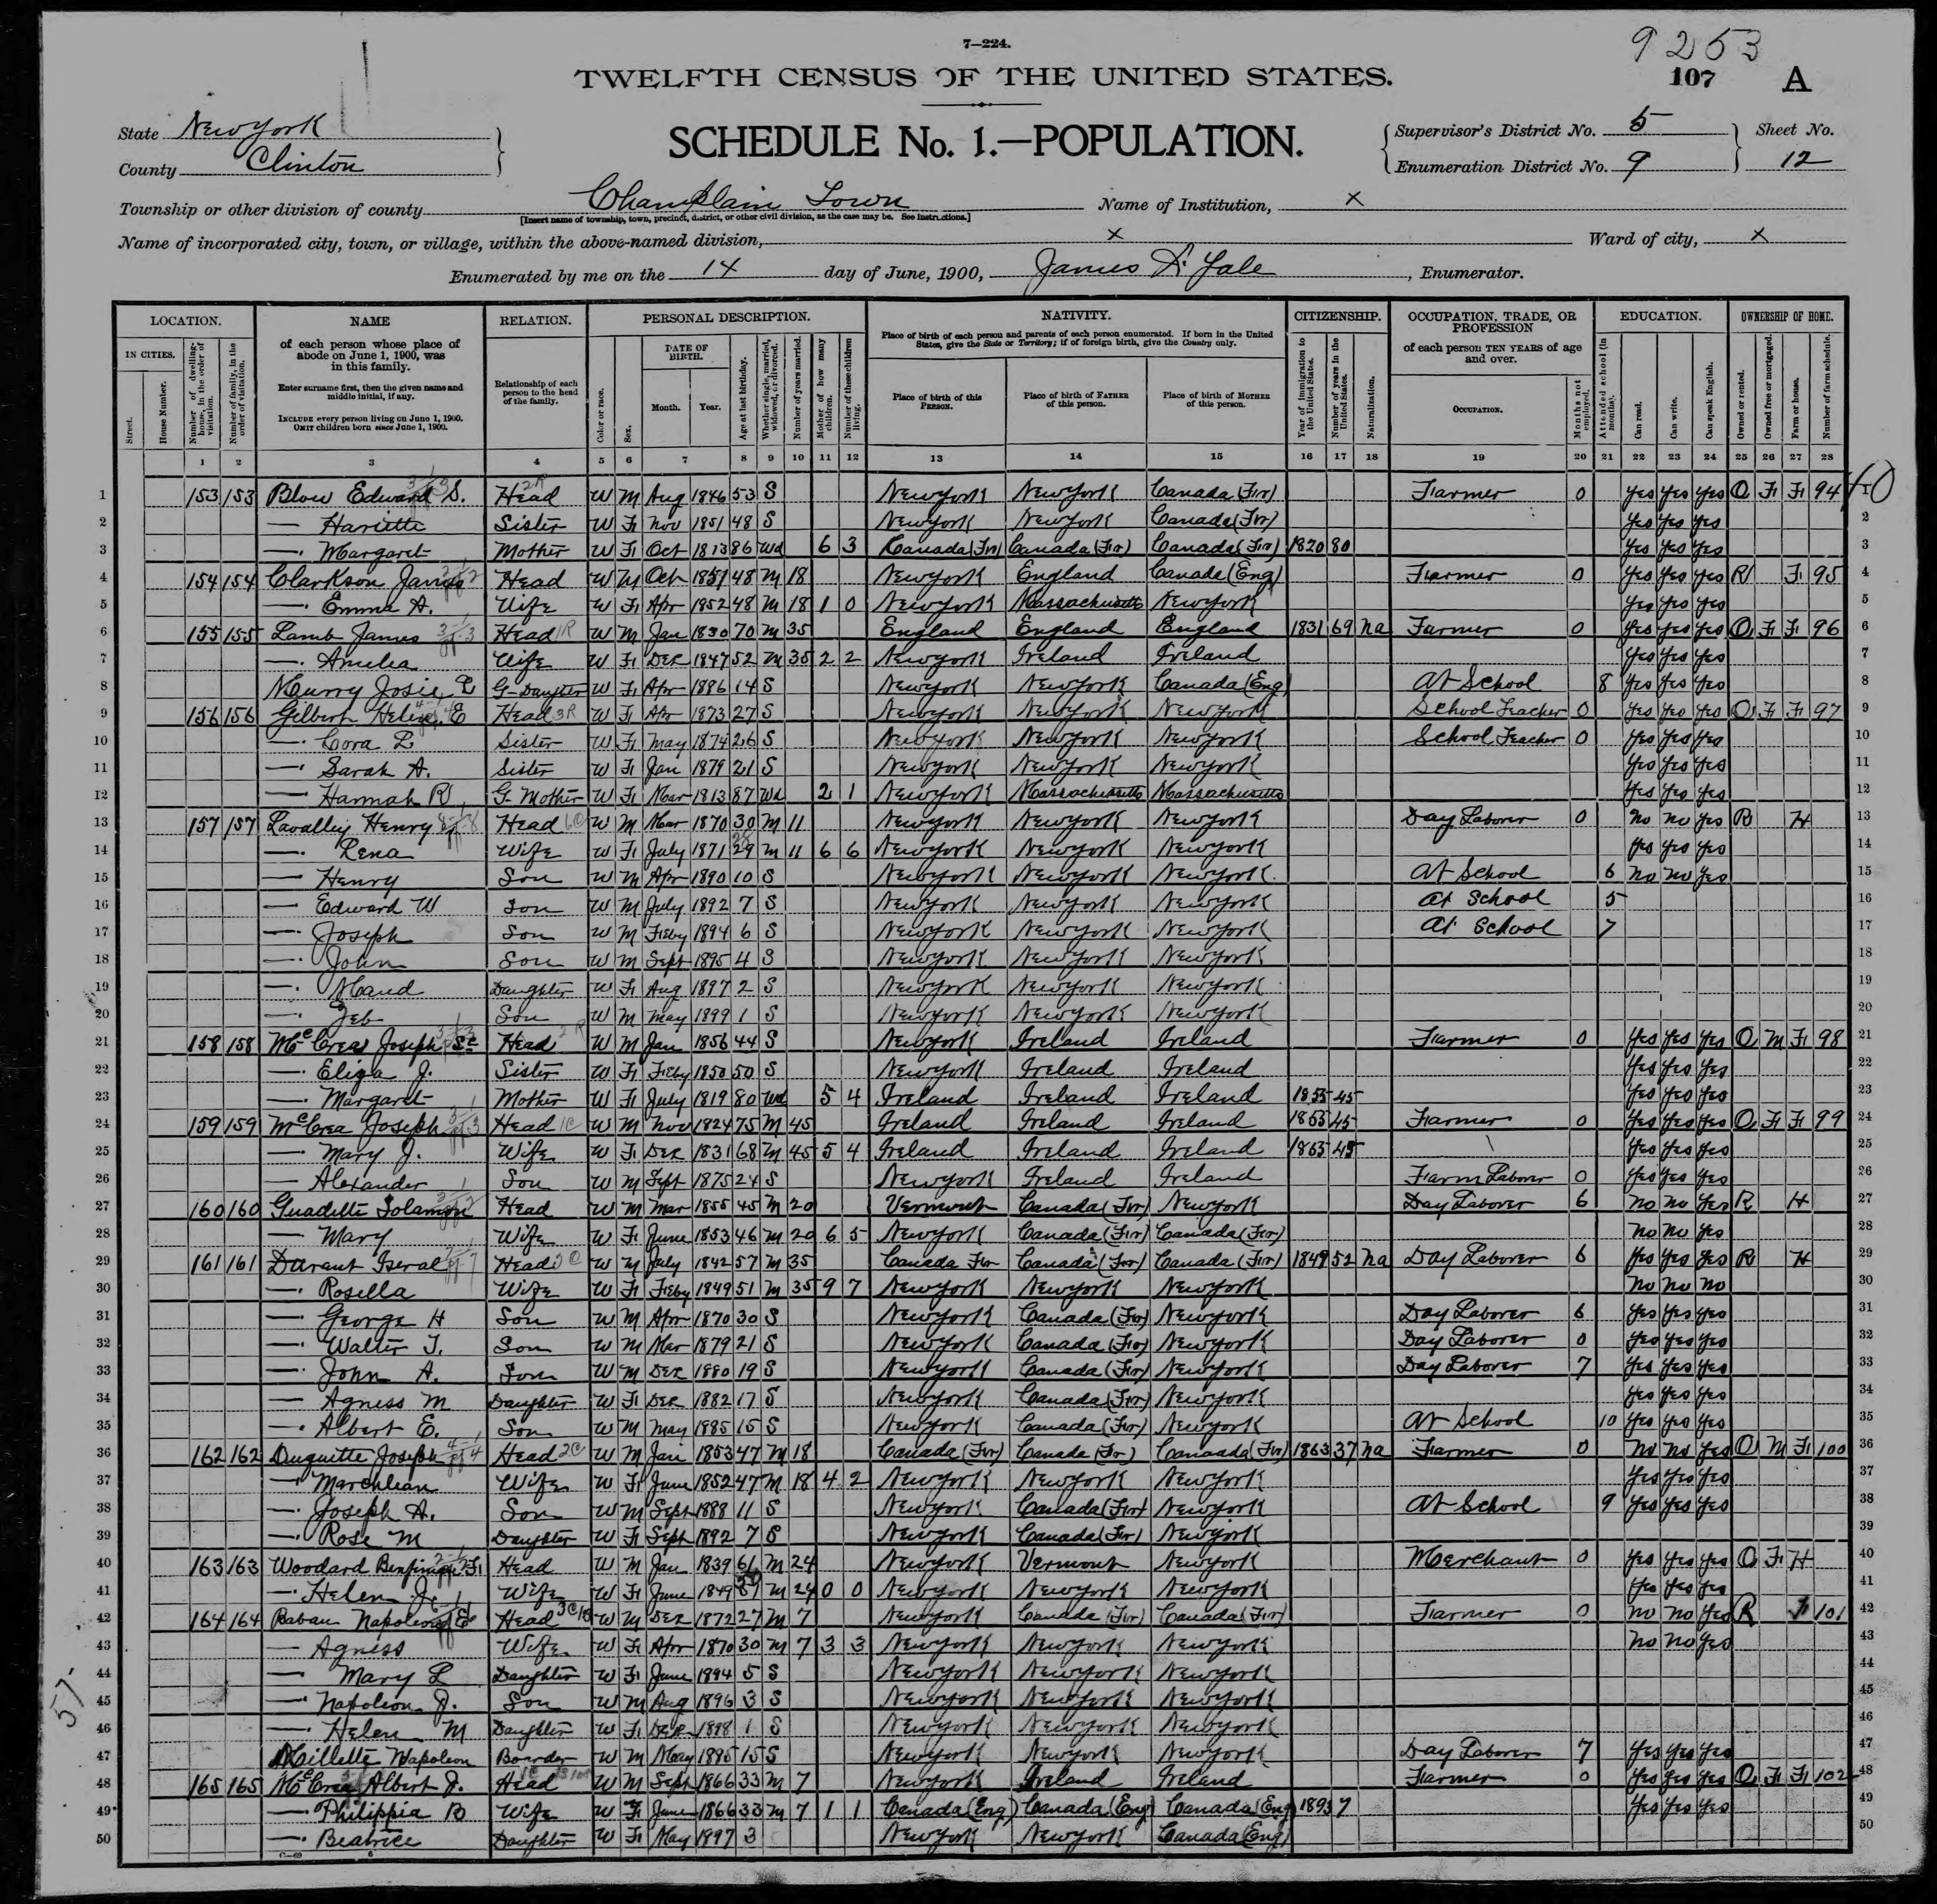 7—224.
9253
TWELFTH CENSUS OF THE UNITED STATES.
107 A
State New York
County Clinton
SCHEDULE No. 1.—POPULATION.
Supervisor's District No. 5 Sheet No.
Enumeration District No. 9 12
Township or other division of county Champlain Town Name of Institution, X
[Insert name of township, town, precinct, district, or other civil division, as the case may be. See instructions.]
Name of incorporated city, town, or village, within the above-named division, X Ward of city, X
Enumerated by me on the 14 day of June, 1900, James Yale, Enumerator.
LOCATION. NAME RELATION. PERSONAL DESCRIPTION. NATIVITY. CITIZENSHIP. OCCUPATION, TRADE, OR PROFESSION EDUCATION. OWNERSHIP OF HOME.
IN CITIES. Street. House Number. Number of dwelling-house, in the order of visitation. Number of family, in the order of visitation.
of each person whose place of abode on June 1, 1900, was in this family.
Enter surname first, then the given name and middle initial, if any.
INCLUDE every person living on June 1, 1900. OMIT children born since June 1, 1900.
Relationship of each person to the head of the family.
Color or race. Sex. DATE OF BIRTH. Month. Year. Age at last birthday. Whether single, married, widowed, or divorced. Number of years married. Mother of how many children. Number of these children living.
Place of birth of each person and parents of each person enumerated. If born in the United States, give the State or Territory; if of foreign birth, give the Country only.
Place of birth of this PERSON. Place of birth of FATHER of this person. Place of birth of MOTHER of this person.
Year of immigration to the United States. Number of years in the United States. Naturalization.
of each person TEN YEARS of age and over.
OCCUPATION. Months not employed.
Attended school (in months). Can read. Can write. Can speak English.
Owned or rented. Owned free or mortgaged. Farm or house. Number of farm schedule.
1 2 3 4 5 6 7 8 9 10 11 12 13 14 15 16 17 18 19 20 21 22 23 24 25 26 27 28
1 153 153 Blow Edward S. Head W M Aug 1846 53 S New York New York Canada (Fr) Farmer 0 Yes Yes Yes O F F 94
2 — Hariette Sister W F Nov 1851 48 S New York New York Canada (Fr) Yes Yes Yes 2
3 — Margaret Mother W F Oct 1813 86 Wd 6 3 Canada (Fr) Canada (Fr) Canada (Fr) 1820 80 Yes Yes Yes 3
4 154 154 Clarkson James Head W M Oct 1851 48 M 18 New York England Canada (Eng) Farmer 0 Yes Yes Yes R F 95 4
5 — Emma A. Wife W F Apr 1852 48 M 18 1 0 New York Massachusetts New York Yes Yes Yes 5
6 155 155 Lamb James Head W M Jan 1830 70 M 35 England England England 1831 69 na Farmer 0 Yes Yes Yes O F F 96 6
7 — Amelia Wife W F Dec 1847 52 M 35 2 2 New York Ireland Ireland Yes Yes Yes 7
8 Murry Josie L G-Daughter W F Apr 1886 14 S New York New York Canada (Eng) At School 8 Yes Yes Yes 8
9 156 156 Gilbert E Head W F Apr 1873 27 S New York New York New York School Teacher 0 Yes Yes Yes O F F 97 9
10 — Cora L Sister W F May 1874 26 S New York New York New York School Teacher 0 Yes Yes Yes 10
11 — Sarah A. Sister W F Jan 1879 21 S New York New York New York Yes Yes Yes 11
12 — Hannah R G-Mother W F Mar 1813 87 Wd 2 1 New York Massachusetts Massachusetts Yes Yes Yes 12
13 157 157 Lavalley Henry Head W M Mar 1870 30 M 11 New York New York New York Day Laborer 0 No No Yes R H 13
14 — Lena Wife W F July 1871 29 M 11 6 6 New York New York New York Yes Yes Yes 14
15 — Henry Son W M Apr 1890 10 S New York New York New York At School 6 No No Yes 15
16 — Edward W Son W M July 1892 7 S New York New York New York At School 5 16
17 — Joseph Son W M Feby 1894 6 S New York New York New York At School 7 17
18 — John Son W M Sept 1895 4 S New York New York New York 18
19 — Maud Daughter W F Aug 1897 2 S New York New York New York 19
20 — Zeb Son W M May 1899 1 S New York New York New York 20
21 158 158 McCrea Joseph Sr Head W M Jan 1856 44 S New York Ireland Ireland Farmer 0 Yes Yes Yes O M F 98 21
22 — Eliza J. Sister W F Feby 1850 50 S New York Ireland Ireland Yes Yes Yes 22
23 — Margaret Mother W F July 1819 80 Wd 5 4 Ireland Ireland Ireland 1855 45 Yes Yes Yes 23
24 159 159 McCrea Joseph Head W M Nov 1824 75 M 45 Ireland Ireland Ireland 1855 45 Farmer 0 Yes Yes Yes O F F 99 24
25 — Mary J. Wife W F Dec 1831 68 M 45 5 4 Ireland Ireland Ireland 1855 45 Yes Yes Yes 25
26 — Alexander Son W M Sept 1875 24 S New York Ireland Ireland Farm Laborer 0 Yes Yes Yes 26
27 160 160 Guadette Solamon Head W M Mar 1855 45 M 20 Vermont Canada (Fr) New York Day Laborer 6 No No Yes R H 27
28 — Mary Wife W F June 1853 46 M 20 6 5 New York Canada (Fr) Canada (Fr) No No Yes 28
29 161 161 Durant Iseral Head W M July 1842 57 M 35 Canada Fr Canada (Fr) Canada (Fr) 1849 52 na Day Laborer 6 Yes Yes Yes R H 29
30 — Rosella Wife W F Feby 1849 51 M 35 9 7 New York New York New York No No No 30
31 — George H Son W M Apr 1870 30 S New York Canada (Fr) New York Day Laborer 6 Yes Yes Yes 31
32 — Walter J. Son W M Mar 1879 21 S New York Canada (Fr) New York Day Laborer 0 Yes Yes Yes 32
33 — John A. Son W M Dec 1880 19 S New York Canada (Fr) New York Day Laborer 7 Yes Yes Yes 33
34 — Agness M Daughter W F Dec 1882 17 S New York Canada (Fr) New York Yes Yes Yes 34
35 — Albert E. Son W M May 1885 15 S New York Canada (Fr) New York At School 10 Yes Yes Yes 35
36 162 162 Duquette Joseph Head W M Jan 1853 47 M 18 Canada (Fr) Canada (Fr) Canaada (Fr) 1863 37 na Farmer 0 No No Yes O M F 100 36
37 — Marchlian Wife W F June 1852 47 M 18 4 2 New York New York New York Yes Yes Yes 37
38 — Joseph A. Son W M Sept 1888 11 S New York Canada (Fr) New York At School 9 Yes Yes Yes 38
39 — Rose M Daughter W F Sept 1892 7 S New York Canada (Fr) New York 39
40 163 163 Woodard F Head W M Jan 1839 61 M 24 New York Vermont New York Merchant 0 Yes Yes Yes O F H 40
41 — Helen J. Wife W F June 1849 M 24 0 0 New York New York New York Yes Yes Yes 41
42 164 164 Baban Napoleon E Head W M Dec 1872 27 M 7 New York Canada (Fr) Canada (Fr) Farmer 0 No No Yes R F 101 42
43 — Agness Wife W F Apr 1870 30 M 7 3 3 New York New York New York No No Yes 43
44 — Mary L Daughter W F June 1894 5 S New York New York New York 44
45 — Napoleon J. Son W M Aug 1896 3 S New York New York New York 45
46 — Helen M Daughter W F Dec 1898 1 S New York New York New York 46
47 Napoleon Boarder W M May 1885 15 S New York New York New York Day Laborer 7 Yes Yes Yes 47
48 165 165 McCrea Albert J. Head W M Sept 1866 33 M 7 New York Ireland Ireland Farmer 0 Yes Yes Yes O F F 102 48
49 — Philippia B Wife W F June 1866 33 M 7 1 1 Canada (Eng) Canada (Eng) Canada (Eng) 1893 7 Yes Yes Yes 49
50 — Beatrice Daughter W F May 1897 3 New York New York Canada (Eng) 50